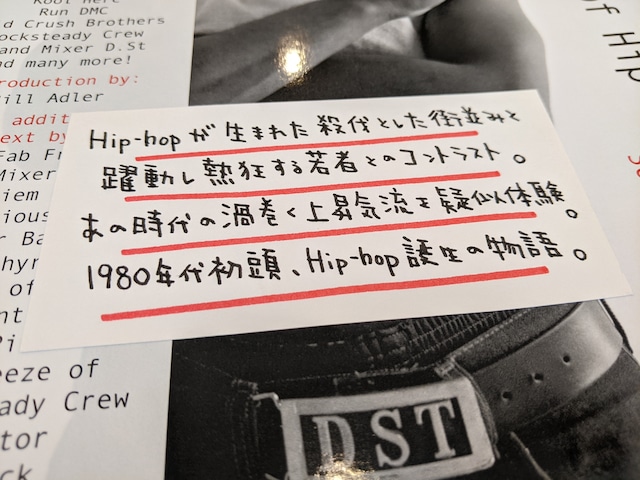 Run DMC
d Crush Brothers
ocksteady Crew
and Mixer D.St
nd many more!
roduction by:
ill Adler
addit
ext by
Fab Fr
Mixer
iem
ious
r Ba
hyn
of
nt
Pi
eeze of
ady Crew
tor
ck
of Hip
Hip-hopが生まれた殺伐とした街並みと
躍動し熱狂する若者とのコントラスト。
あの時代の渦巻く上昇気流を疑似体験。
1980年代初頭、Hip-hop誕生の物語。
DST